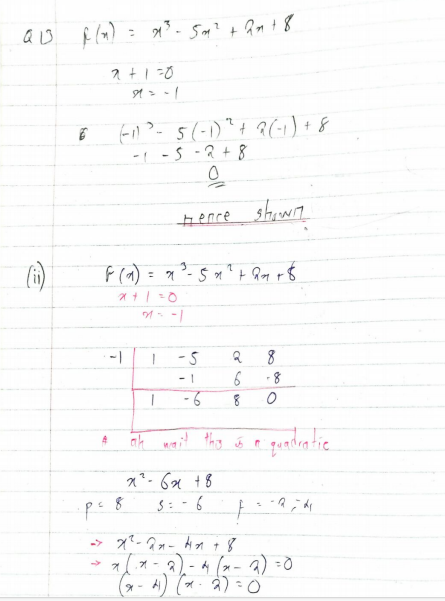 Q13 f(x) = x³ - 5x² + 2x + 8
x + 1 = 0
x = -1
(-1)³ - 5(-1)² + 2(-1) + 8
-1 - 5 - 2 + 8
0
Hence shown
(ii) f(x) = x³ - 5x² + 2x + 8
x + 1 = 0
x = -1
-1 | 1 -5 2 8
-1 6 -8
1 -6 8 0
ah wait this is a quadratic
x² - 6x + 8
p = 8 s = -6 f = -2, -4
→ x² - 2x - 4x + 8
→ x(x - 2) - 4(x - 2) = 0
(x - 4) (x - 2) = 0